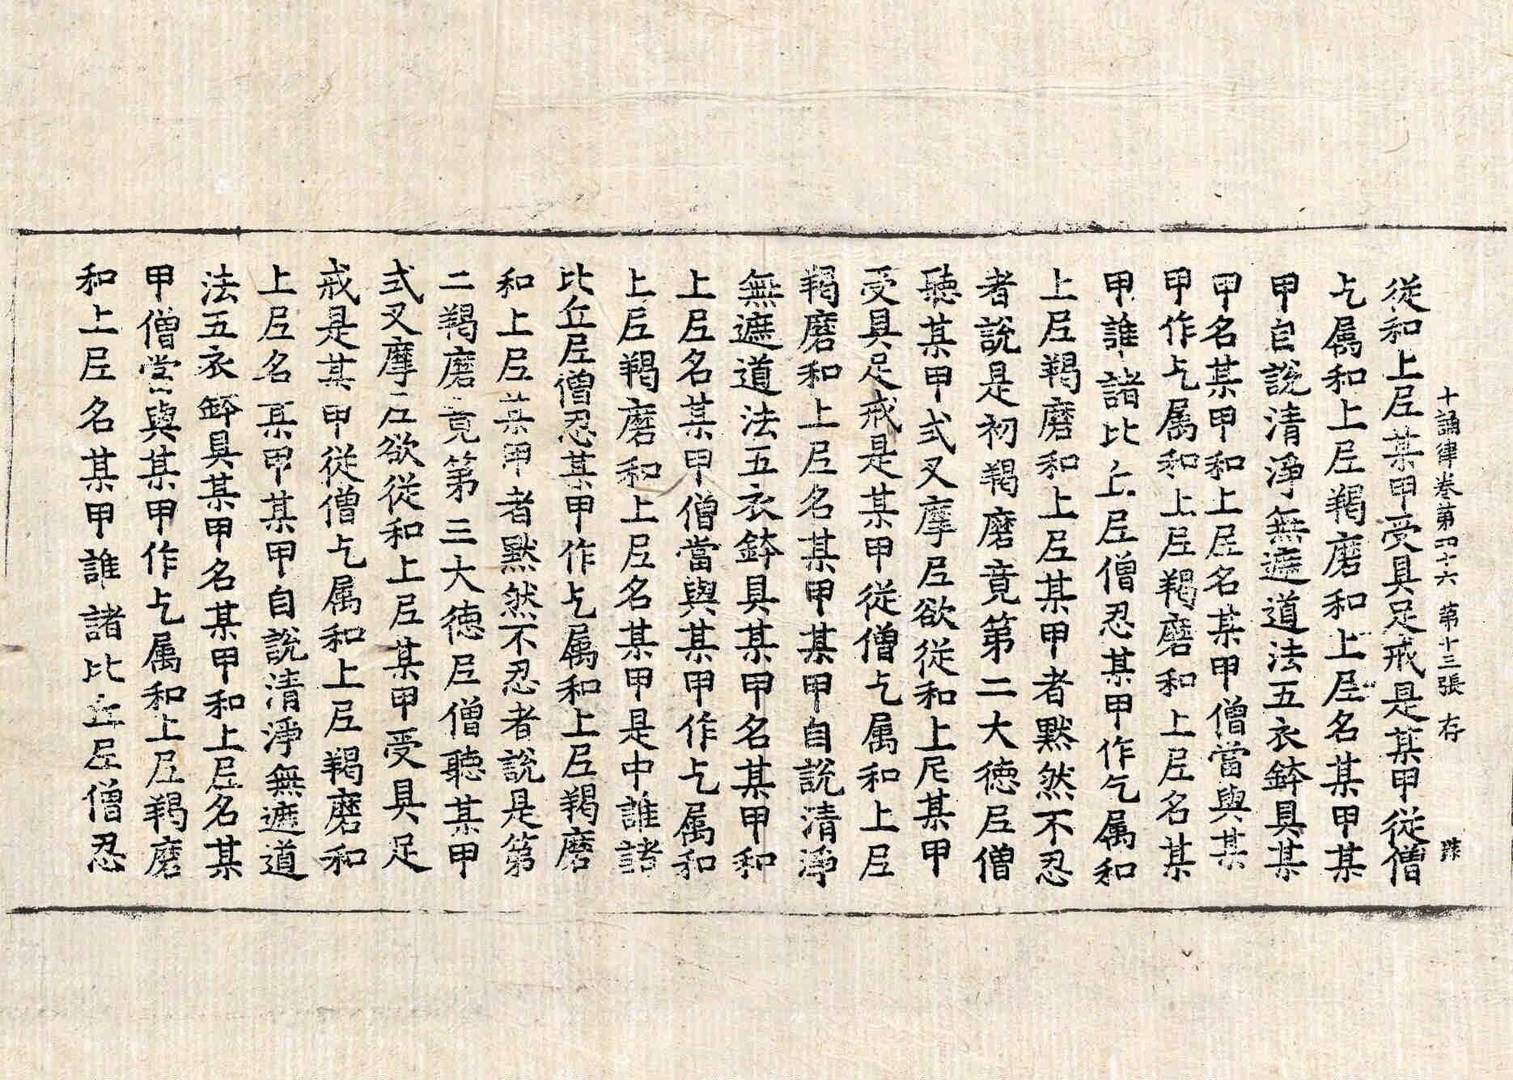 十誦律卷第四十六 第十三張 存
從和上尼某甲受具足戒是某甲從僧
乞属和上尼羯磨和上尼名某甲某
甲自說清淨無遮道法五衣鉢具某
甲名某甲和上尼名某甲僧當與某
甲作乞属和上尼羯磨和上尼名某
甲誰諸比丘尼僧忍某甲作乞属和
上尼羯磨和上尼某甲者默然不忍
者說是初羯磨竟第二大德尼僧
聽某甲式叉摩尼欲從和上尼某甲
受具足戒是某甲從僧乞属和上尼
羯磨和上尼名某甲某甲自說清淨
無遮道法五衣鉢具某甲名某甲和
上尼名某甲僧當與某甲作乞属和
上尼羯磨和上尼名某甲是中誰諸
比丘尼僧忍某甲作乞属和上尼羯磨
和上尼某甲者默然不忍者說是第
二羯磨竟第三大德尼僧聽某甲
式叉摩尼欲從和上尼某甲受具足
戒是某甲從僧乞属和上尼羯磨和
上尼名某甲某甲自說清淨無遮道
法五衣鉢具某甲名某甲和上尼名某
甲僧當與某甲作乞属和上尼羯磨
和上尼名某甲誰諸比丘尼僧忍